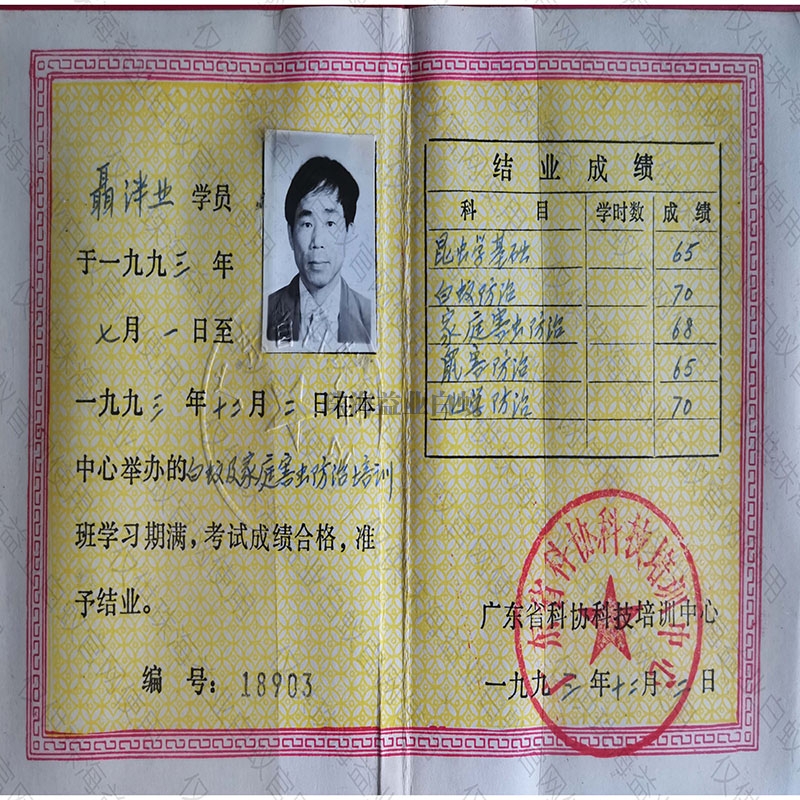 聶泮业 学员
于一九九三年
七月一日至
一九九三年十二月二日在本
中心举办的白蚁及家庭害虫防治培训
班学习期满，考试成绩合格，准
予结业。
编号：18903
结业成绩
科目 学时数 成绩
昆虫学基础 65
白蚁防治 70
家庭害虫防治 68
鼠害防治 65
化学防治 70
广东省科协科技培训中心
一九九三年十二月二日
广东省科协科技培训中心
珠海益业白蚁